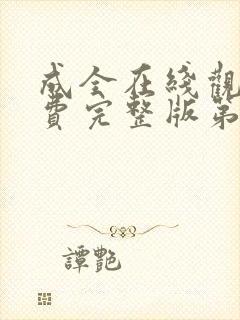 成全在綫觀
費完整版第
譚艷